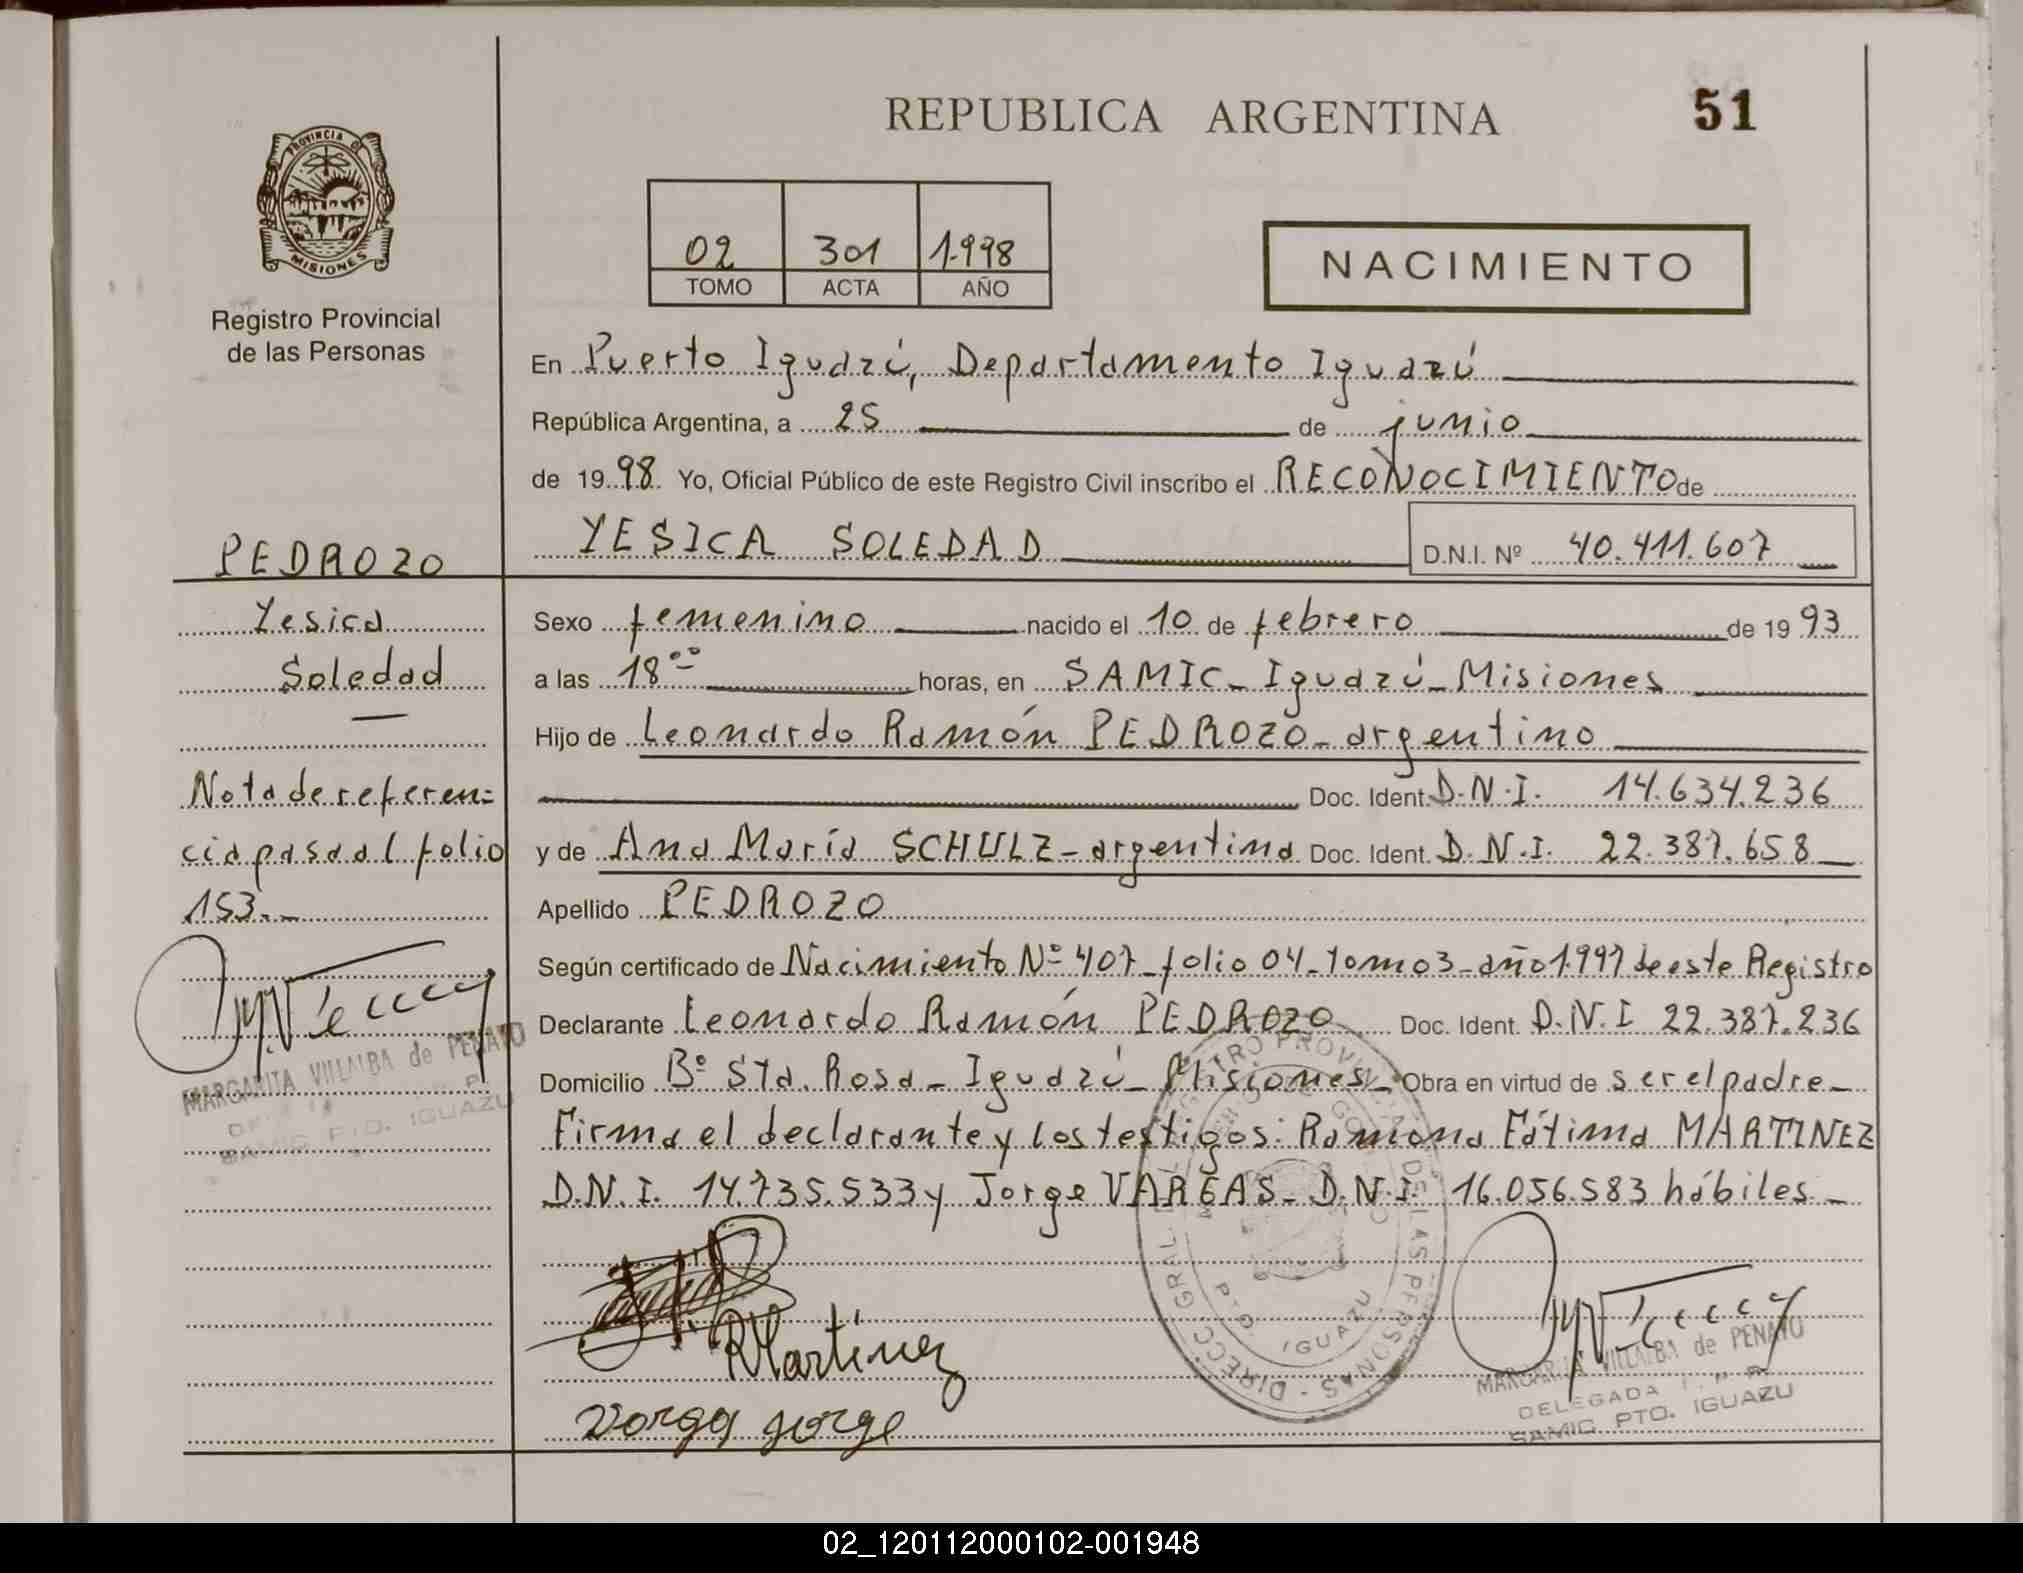 REPUBLICA ARGENTINA
51
PROVINCIA DE
MISIONES
Registro Provincial
de las Personas
02 301 1.998
TOMO ACTA AÑO
NACIMIENTO
En Puerto Iguazú, Departamento Iguazú
República Argentina, a 25 de junio
de 1998. Yo, Oficial Público de este Registro Civil inscribo el RECONOCIMIENTO de
YESICA SOLEDAD D.N.I. Nº 40.411.607
PEDROZO
Yesica
Soledad
Nota de referen=
cia pasa al folio
153.-
Sexo femenino nacido el 10 de febrero de 1993
a las 18 horas, en SAMIC_ Iguazú_ Misiones
Hijo de Leonardo Ramón PEDROZO_ argentino
Doc. Ident. D.N.I. 14.634.236
y de Ana María SCHULZ - argentina Doc. Ident. D.N.I. 22.387.658
Apellido PEDROZO
Según certificado de Nacimiento Nº 407_folio 04_Tomo 3_año 1.997 de este Registro
Declarante Leonardo Ramón PEDROZO Doc. Ident. D.N.I 22.387.236
Domicilio Bº Sta. Rosa_ Iguazú_ Misiones_ Obra en virtud de ser el padre_
Firma el declarante y los testigos: Ramona Fátima MARTINEZ
D.N.I. 14.735.533 y Jorge VARGAS_ D.N.I. 16.056.583 hábiles_
MARGARITA VILLALBA de PENAYO
SAMIC PTO. IGUAZU
RMartinez
Vorga Jorge
DIRECC. GRAL. DEL REGISTRO PROVINCIAL DE LAS PERSONAS
PTO. IGUAZU
MARGARITA VILLALBA de PENAYO
DELEGADA
SAMIC PTO. IGUAZU
02_120112000102-001948